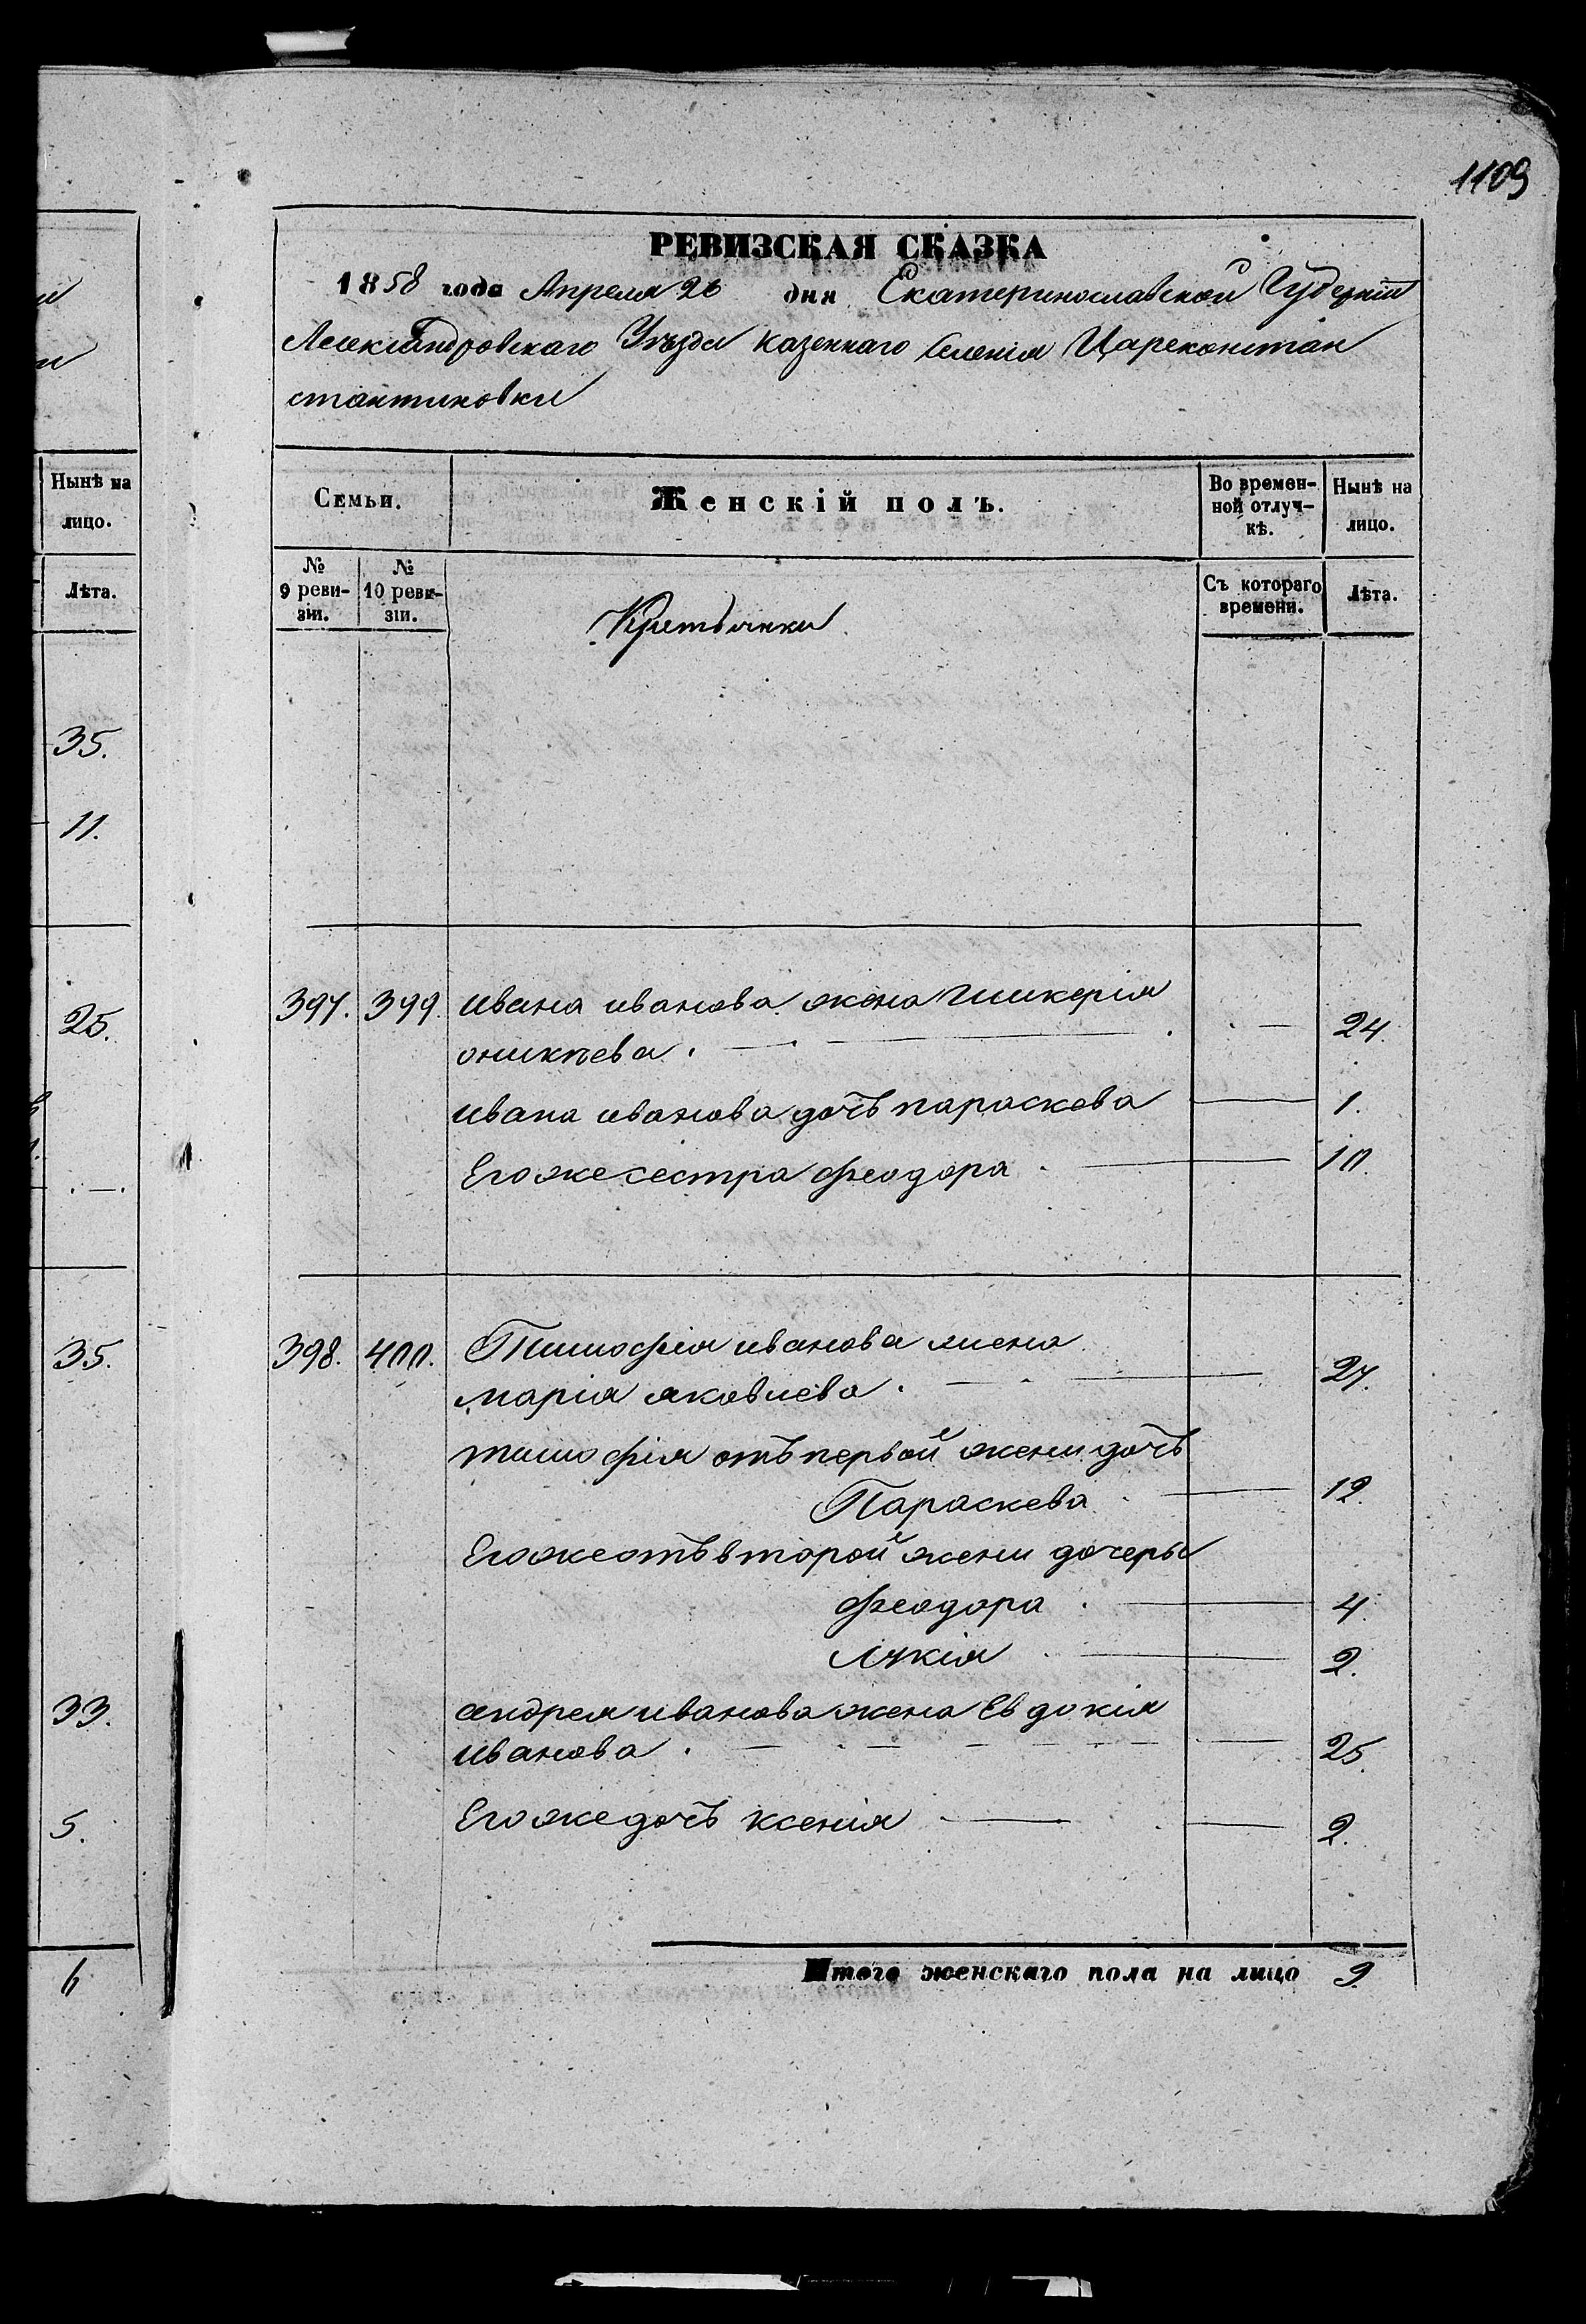 1109
РЕВИЗСКАЯ СКАЗКА
1858 года Апреля 26 дня Екатеринославской Губерніи
Александровскаго Уѣзда казеннаго Селенія Цареконстан
стантиновки
Нынѣ на лицо.
Лѣта.
35.
11.
25.
35.
33.
5.
6
Семьи.
Женскій полъ.
Во времен-
ной отлуч-
кѣ.
Нынѣ на
лицо.
№
9 реви-
зіи.
№
10 реви-
зіи.
Съ котораго
времени.
Лѣта.
Крестьянки
397. 399. ивана иванова жена гликерія
оникѣева. 24.
ивана иванова дочь параскева 1.
Егоже сестра феодора 10
398. 400. Тимофія иванова жена
марія яковлева. 27.
тимофія отъ первой жени дочь
Параскева 12.
Егоже отъ второй жени дочеры
феодора 4.
Лукія 2.
андрея иванова жена Евдокія
иванова. 25.
Егоже дочь ксенія 2.
Итого женскаго пола на лицо 9.